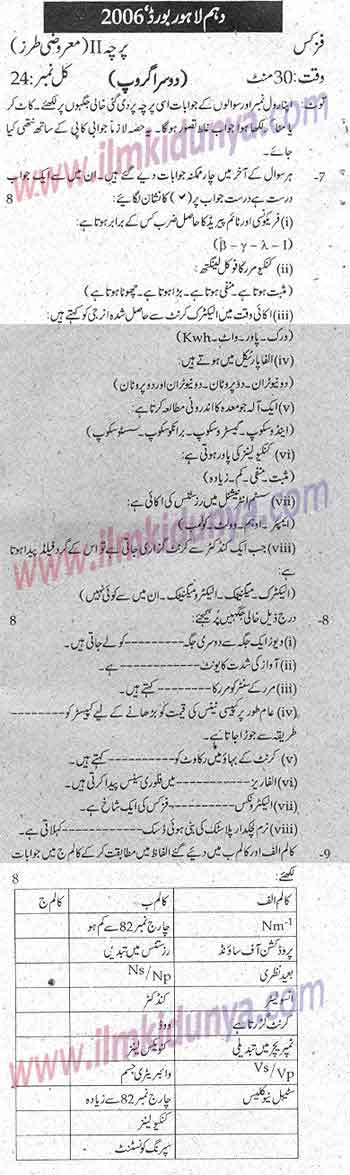 دہم لاہور بورڈ 2006ء
فزکس پرچہ II (معروضی طرز)
وقت:30منٹ (دوسرا گروپ) کل نمبر:24
نوٹ: اپنا رول نمبر اور سوالوں کے جوابات اسی پرچہ پر دی گئی خالی جگہوں پر لکھئے۔ کاٹ کر
یا مٹا لکھا ہوا جواب غلط تصور ہو گا۔ یہ حصہ لازماً جوابی کاپی کے ساتھ نتھی کیا
جائے۔
7- ہر سوال کے آخر میں چار ممکنہ جوابات دیے گئے ہیں۔ ان میں سے ایک جواب
درست ہے درست جواب پر (✓) کا نشان لگائیے: 8
(i) فریکوئنسی اور ٹائم پیریڈ کا حاصل ضرب کس کے برابر ہوتا ہے:
(β – γ – λ – 1)
(ii) کنکیو مرر کا فوکل لینگتھ:
(مثبت ہوتا ہے۔ منفی ہوتا ہے۔ بڑا ہوتا ہے۔ چھوٹا ہوتا ہے)
(iii) اکائی وقت میں الیکٹرک کرنٹ سے حاصل شدہ انرجی کو کہتے ہیں:
(ورک۔ پاور۔ واٹ۔ Kwh)
(iv) الفا پارٹیکل میں ہوتے ہیں:
(دو نیوٹران۔ دو پروٹان۔ دو نیوٹران اور دو پروٹان)
(v) ایک آلہ جو معدہ کا اندرونی مطالعہ کرتا ہے:
(اینڈوسکوپ۔ گیسٹروسکوپ۔ برانکوسکوپ۔ سسٹوسکوپ)
(vi) کنکیو لینز کی پاور ہوتی ہے:
(مثبت۔ منفی۔ کم۔ زیادہ)
(vii) سسٹم انٹرنیشنل میں رزسٹنس کی اکائی ہے:
(ایمپئر۔ اوہم۔ وولٹ۔ کولمب)
(viii) جب ایک کنڈکٹر سے کرنٹ گزاری جاتی ہے تو اس کے گرد فیلڈ پیدا ہوتا
ہے:
(الیکٹرک۔ میگنیٹک۔ الیکٹرومیگنیٹک۔ ان میں سے کوئی نہیں)
8- درج ذیل خالی جگہیں پر کیجئے: 8
(i) ویوز ایک جگہ سے دوسری جگہ ---------- کو لے جاتی ہیں۔
(ii) آواز کی شدت کا یونٹ ---------- ہے۔
(iii) مرر کے سنٹر کو مرر کا ---------- کہتے ہیں۔
(iv) عام طور پر کپیسی ٹینس کی قیمت کو بڑھانے کے لیے کپیسٹر کو ----------
طریقہ سے جوڑا جاتا ہے۔
(v) کرنٹ کے بہاؤ میں رکاوٹ کو ---------- کہتے ہیں۔
(vi) الفا ریز ---------- میں فلوری سینس پیدا کرتی ہیں۔
(vii) الیکٹرونکس ---------- فزکس کی ایک شاخ ہے۔
(viii) نرم لچکدار پلاسٹک کی بنی ہوئی ڈسک ---------- کہلاتی ہے۔
9- کالم الف اور کالم ب میں دیئے گئے الفاظ میں مطابقت کر کے کالم ج میں جوابات
لکھئے: 8
کالم الف کالم ب کالم ج
Nm⁻¹ چارج نمبر 82 سے کم ہو
پروڈکشن آف ساؤنڈ رزسٹنس میں تبدیلی
بعید نظری Ns/Np
انسولیٹر کنڈکٹر
کرنٹ گزرتا ہے ووڈ
ٹمپریچر میں تبدیلی کنویکس لینز
Vs/Vp وائبریٹری جسم
سٹیبل نیوکلیس چارج نمبر 82 سے زیادہ
کنکیو لینز
سپرنگ کونسٹنٹ
www.ilmkidunya.com
www.ilmkidunya.com
www.ilmkidunya.com